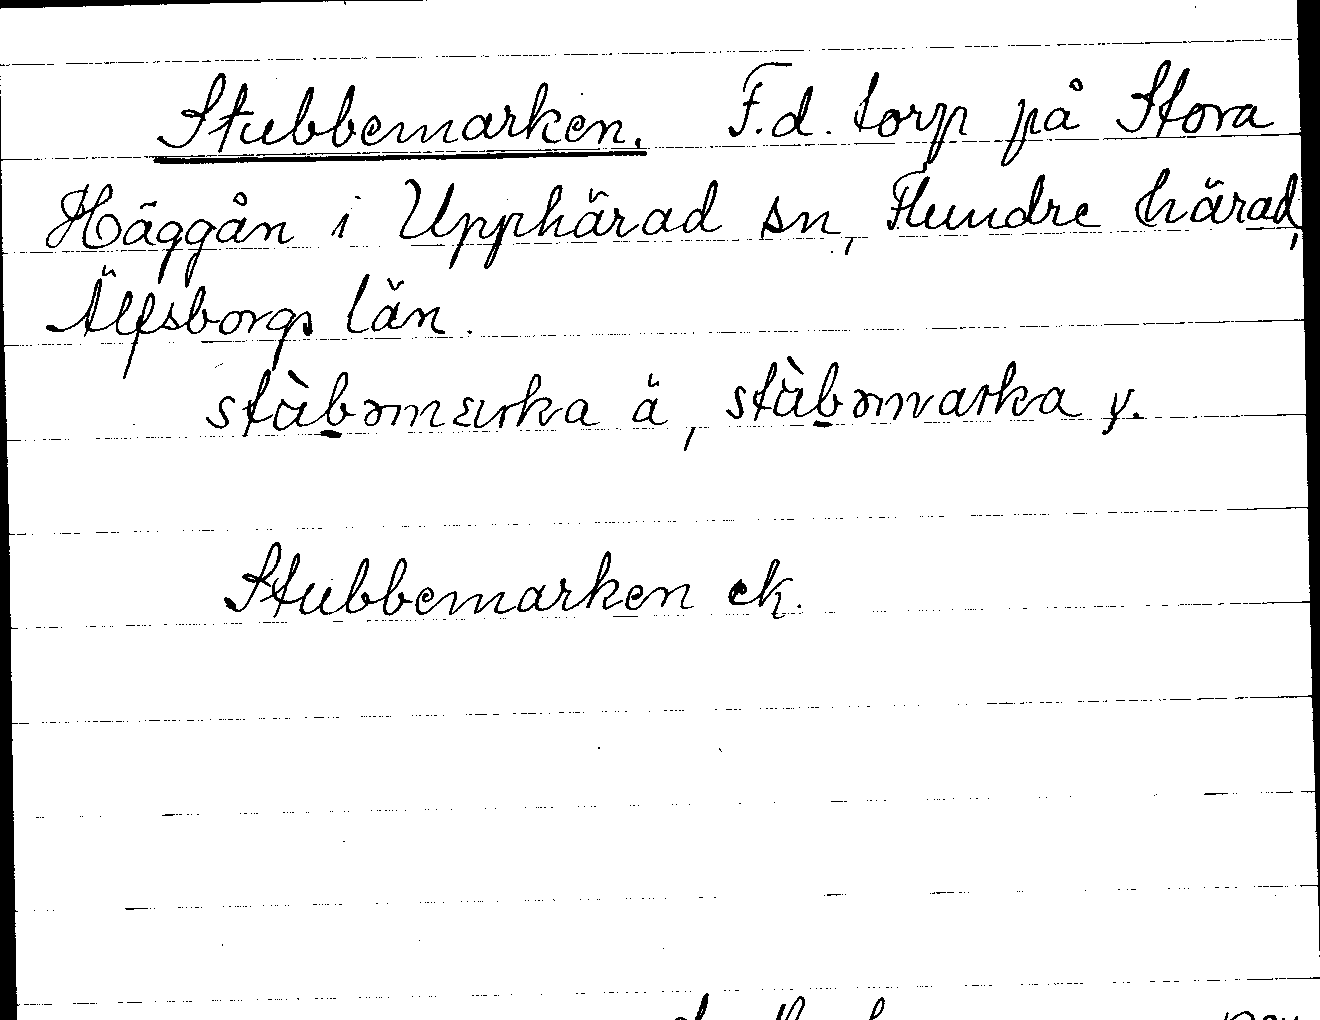 Stubbemarken. F.d. torp på Stora
Häggån i Upphärad sn, Flundre härad,
Älfsborgs län.
stàb̲əmɛrka ä, stàb̲əmarka y.
Stubbemarken ek.